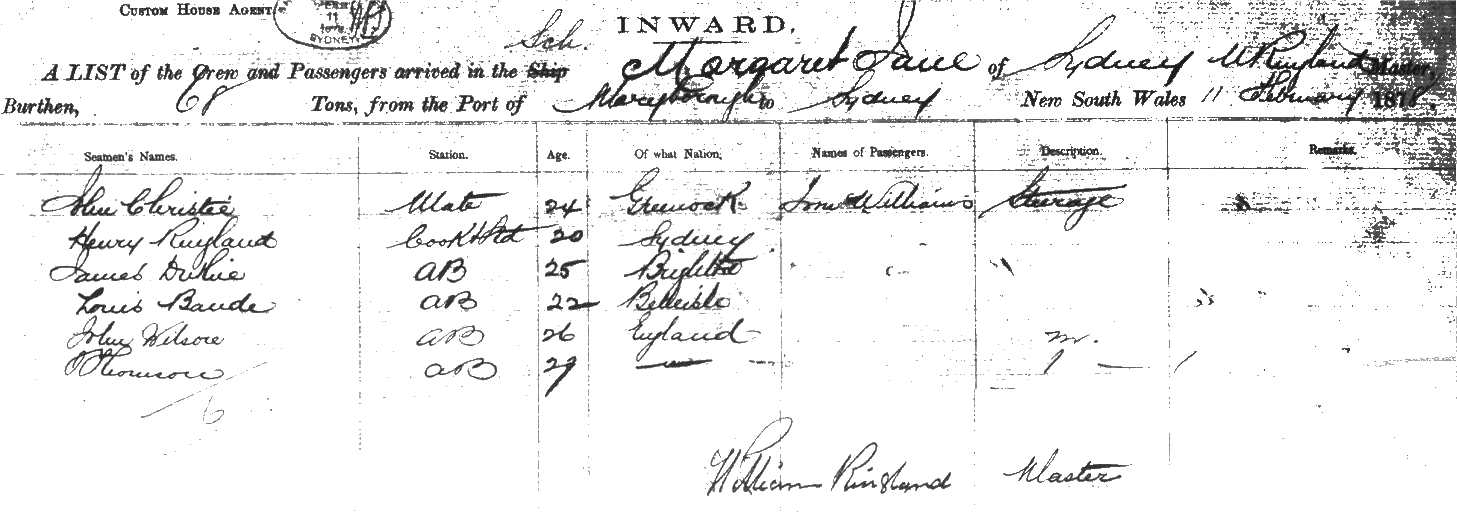 CUSTOM HOUSE AGENT
11
SYDNEY
INWARD.
Sch.
A LIST of the Crew and Passengers arrived in the Ship Margaret Jane of Sydney W Ringland Master,
Burthen, 68 Tons, from the Port of Maryborough to Sydney New South Wales 11 February 1878,
Seamen's Names. Station. Age. Of what Nation. Names of Passengers. Description. Remarks.
John Christie Mate 24 Greenock Williams Sterage
Henry Ringland Cook & Std 20 Sydney
James 25 AB Brighton
Louis Baude AB 22 Belleisle
John Wilson AB 26 England
Thomson AB 29 —
6
William Ringland Master